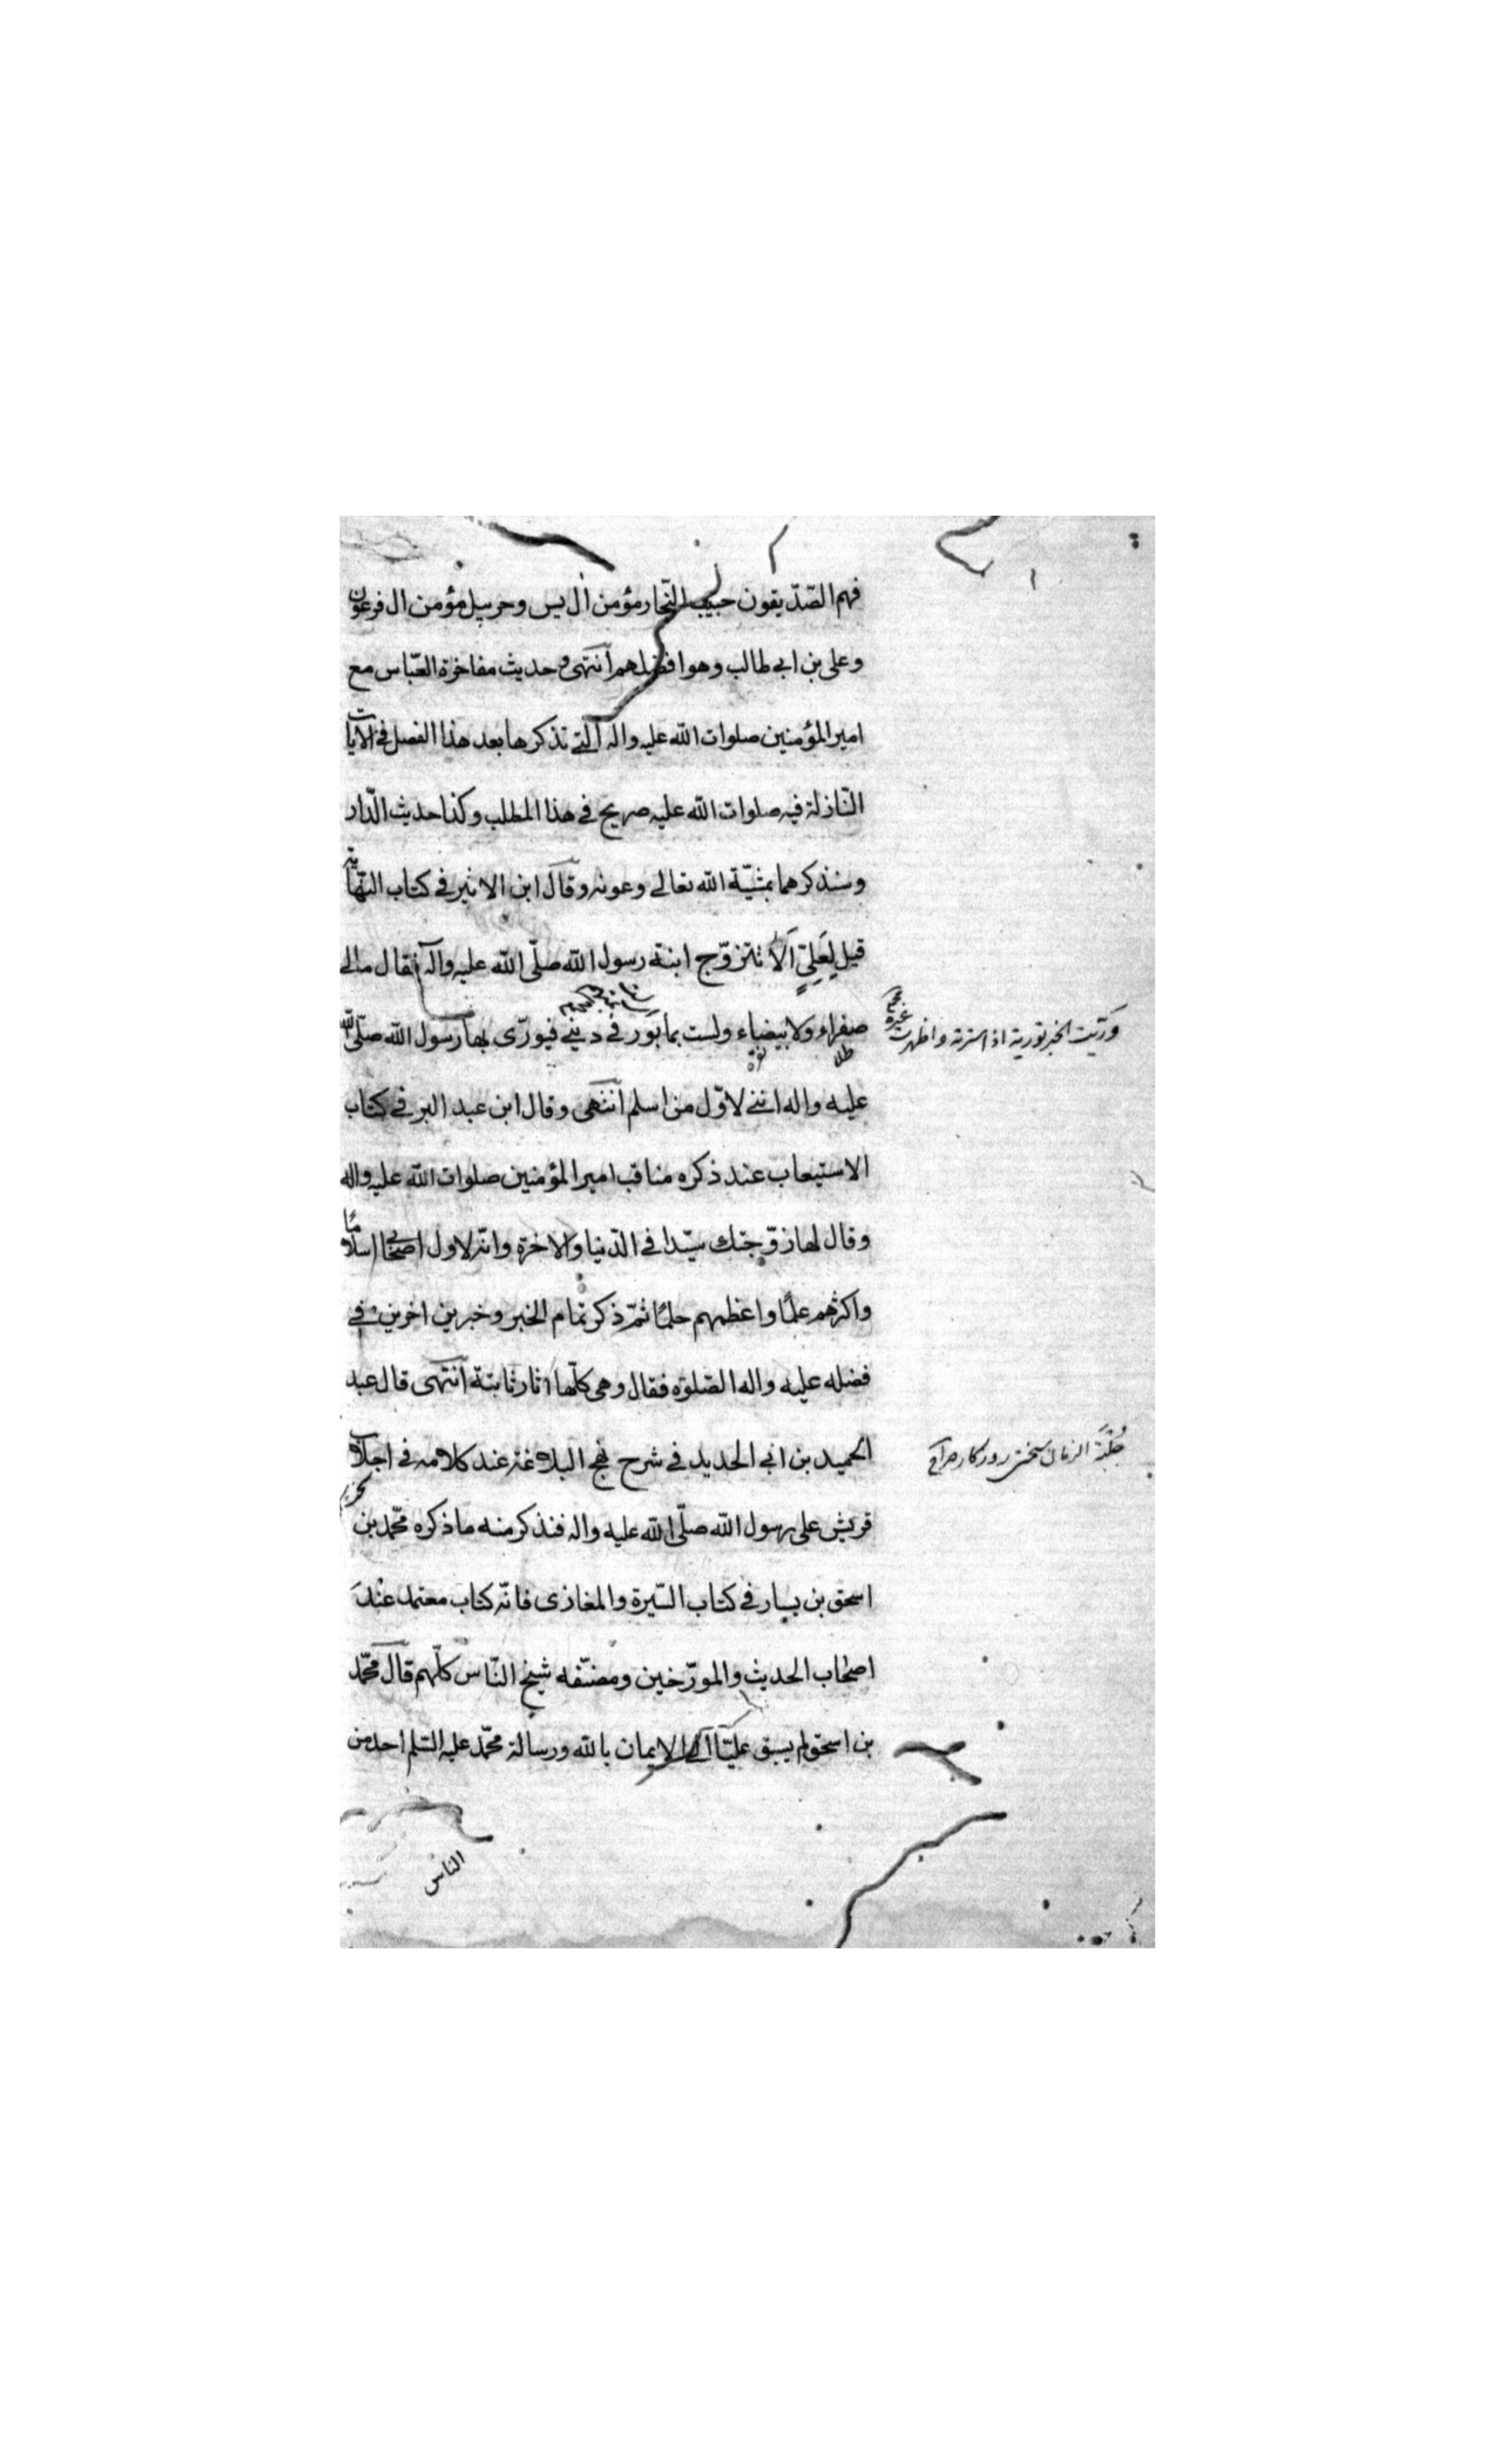 فهم الصّدّيقون حبيب النّجار مؤمن ال يس وحزبيل مؤمن ال فرعون
وعلى بن ابي طالب وهو افضلهم انتهى وحديث مفاخرة العبّاس مع
امير المؤمنين صلوات الله عليه واله التي نذكرها بعد هذا الفصل في الايات
النّازلة فيه صلوات الله عليه صريح في هذا المطلب وكذا حديث الدّار
وسنذكرهما بمشيّة الله تعالى وعونه وقال ابن الاثير في كتاب النّهاية
قيل لِعَلِيٍّ اَلَا تتزوّج ابنة رسول الله صلّى الله عليه وآله فقال مالي
صفراء ولا بيضاء ولست بمأبور في ديني فيورّى بها رسول الله صلّى الله
طلا نقره
ورّيت الخبر تورية اذا سترته واظهرت غيره
عليه واله انني لاوّل من اسلم انتهى وقال ابن عبد البر في كتاب
الاستيعاب عند ذكره مناقب امير المؤمنين صلوات الله عليه واله
وقال لها زوّجتك سيّدا في الدّنيا والاخرة وانّه لاول اصحابي اسلامًا
واكثرهم علمًا واعظمهم حلمًا ثمّ ذكر تمام الخبر وخبرين اخرين في
فضله عليه واله الصّلوة فقال وهى كلّها اثار ثابتة انتهى قال عبد
الحميد بن ابي الحديد في شرح نهج البلاغة عند كلامه في اجلاب
جُلْبَة الزمان سختى روزكار
قريش على رسول الله صلّى الله عليه واله فنذكر منه ما ذكره محمّد بن
اسحق بن يسار في كتاب السّيرة والمغازى فانّه كتاب معتمد عند
اصحاب الحديث والمورّخين ومصنّفه شيخ النّاس كلّهم قال محمّد
بن اسحق لم يسبق عليّا الى الايمان بالله ورسالة محمّد عليه السّلم احد من
الناس